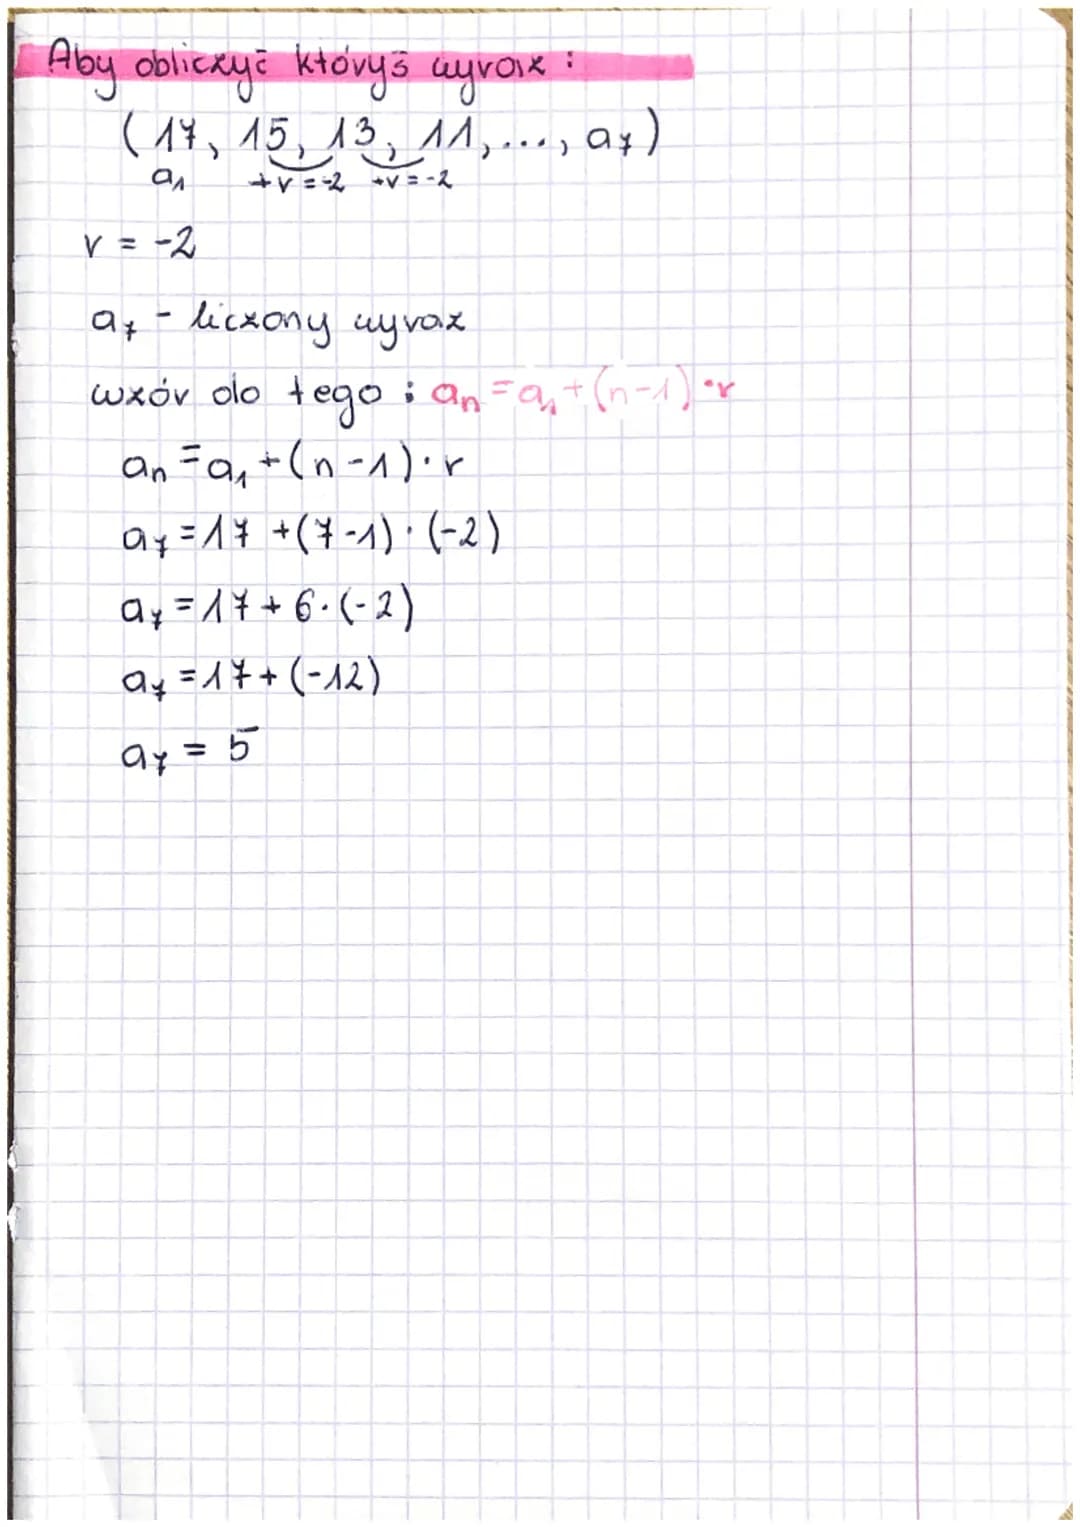 Aby obliczyć któryś wyraz :
(17, 15, 13, 11, ..., a₇)
a₁ +r = -2 +r = -2
r = -2
a₇ - liczony wyraz
wzór do tego : aₙ = a₁ + (n-1) · r
aₙ = a₁ + (n-1) · r
a₇ = 17 + (7-1) · (-2)
a₇ = 17 + 6 · (-2)
a₇ = 17 + (-12)
a₇ = 5